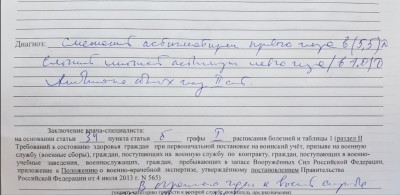 Диагноз: смешанный астигматизм правого глаза в (5,5) Д
сложный миопич астигматизм левого глаза / в 1,0 / D
Амблиопия обоих глаз II ст.
Заключение врача-специалиста:
на основании статьи 34 пункта статьи б графы I расписания болезней и таблицы 1 (раздел II
Требований к состоянию здоровья граждан при первоначальной постановке на воинский учёт, призыве на военную
службу (военные сборы), граждан, поступающих на военную службу по контракту, граждан, поступающих в военно-
учебные заведения, военнослужащих, граждан, пребывающих в запасе Вооружённых Сил Российской Федерации,
приложение к Положению о военно-врачебной экспертизе, утверждённому постановлением Правительства
Российской Федерации от 4 июля 2013 г. N 565)